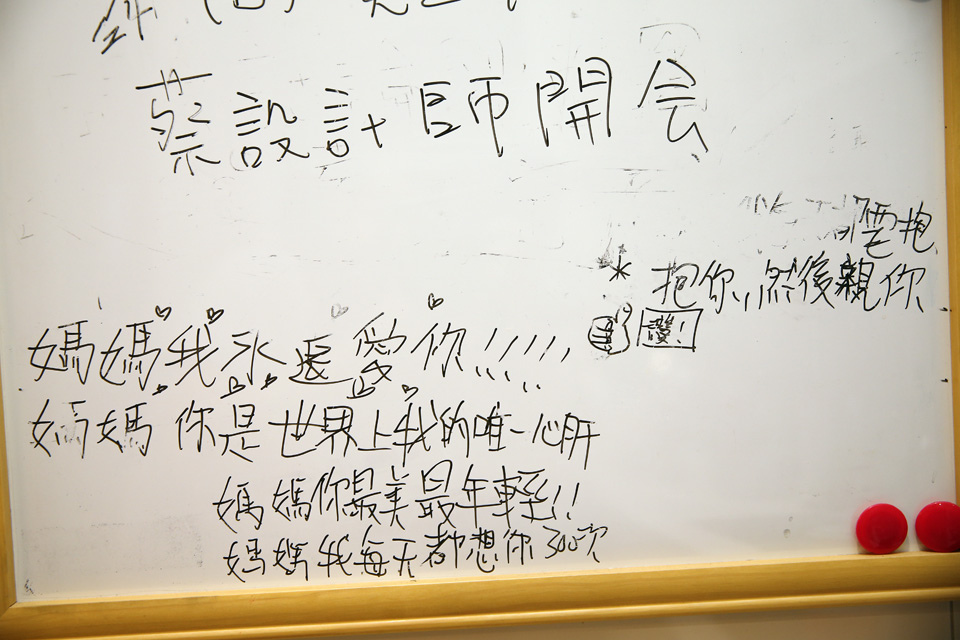 蔡設計師開会
抱
* 抱你,然後親你
讚!
媽媽我永遠愛你!!!!!
媽媽你是世界上我的唯一心肝
媽媽你最美最年輕!!
媽媽我每天都想你300次